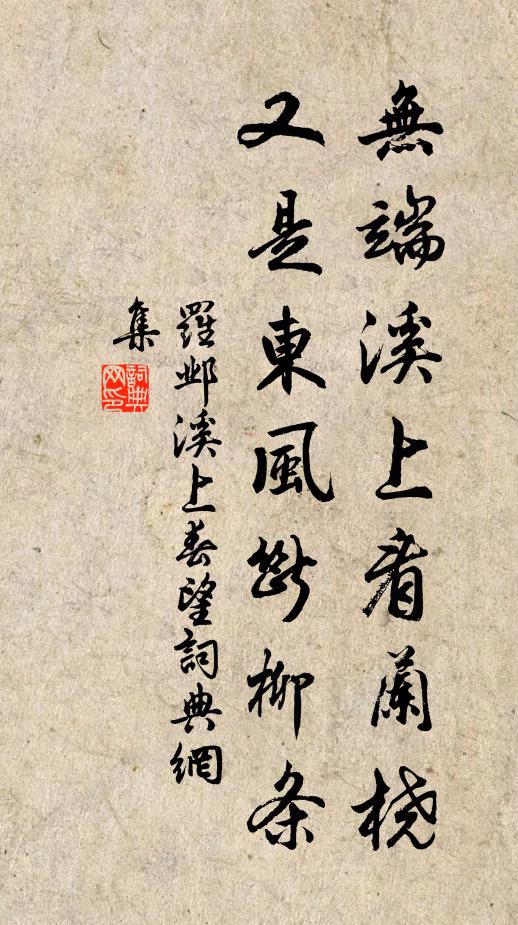 無端溪上看蘭桡
又是東風断柳条
羅邺溪上春望詞典網
集
詞典
网印